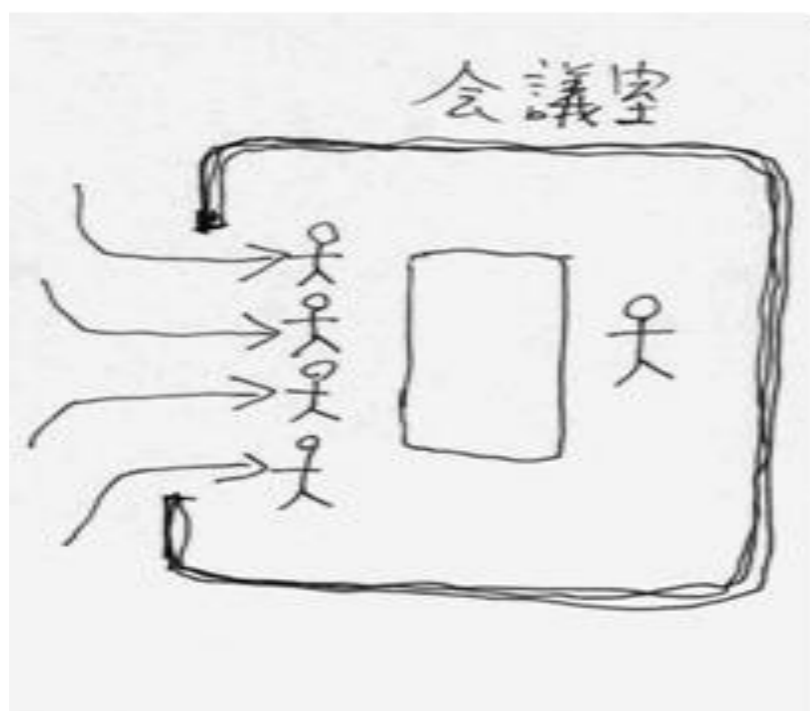 会議室